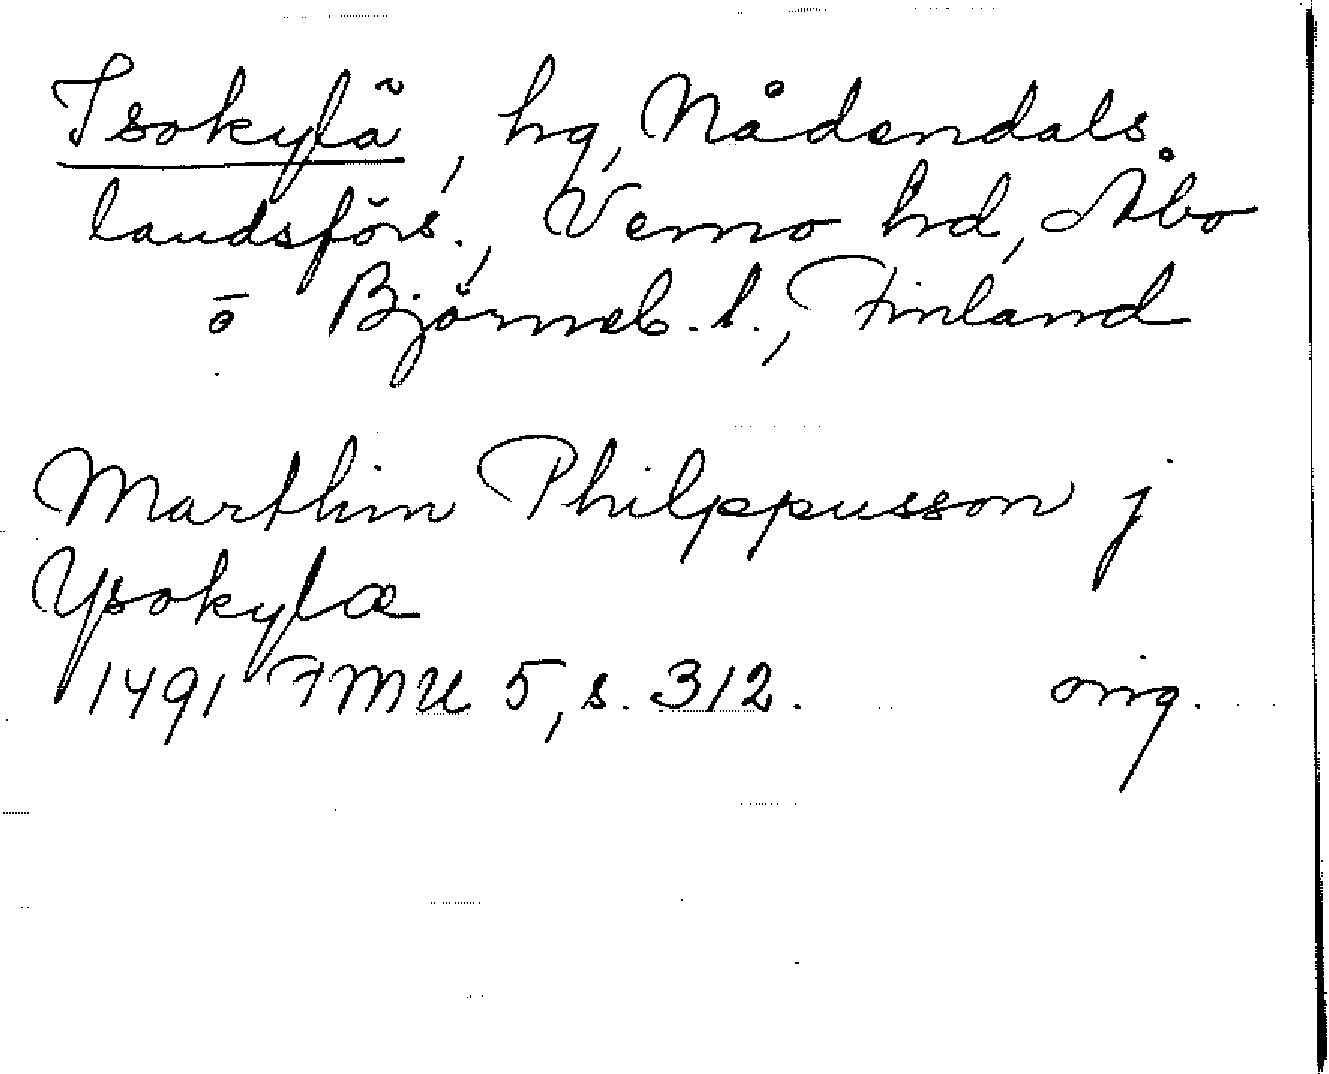 Isokylä, hg, Nådendals
landsförs., Vemo hd, Åbo
o Björneb. l., Finland
Marthin Philppusson j
Ysokylæ
1491 FMU 5, s. 312. orig.